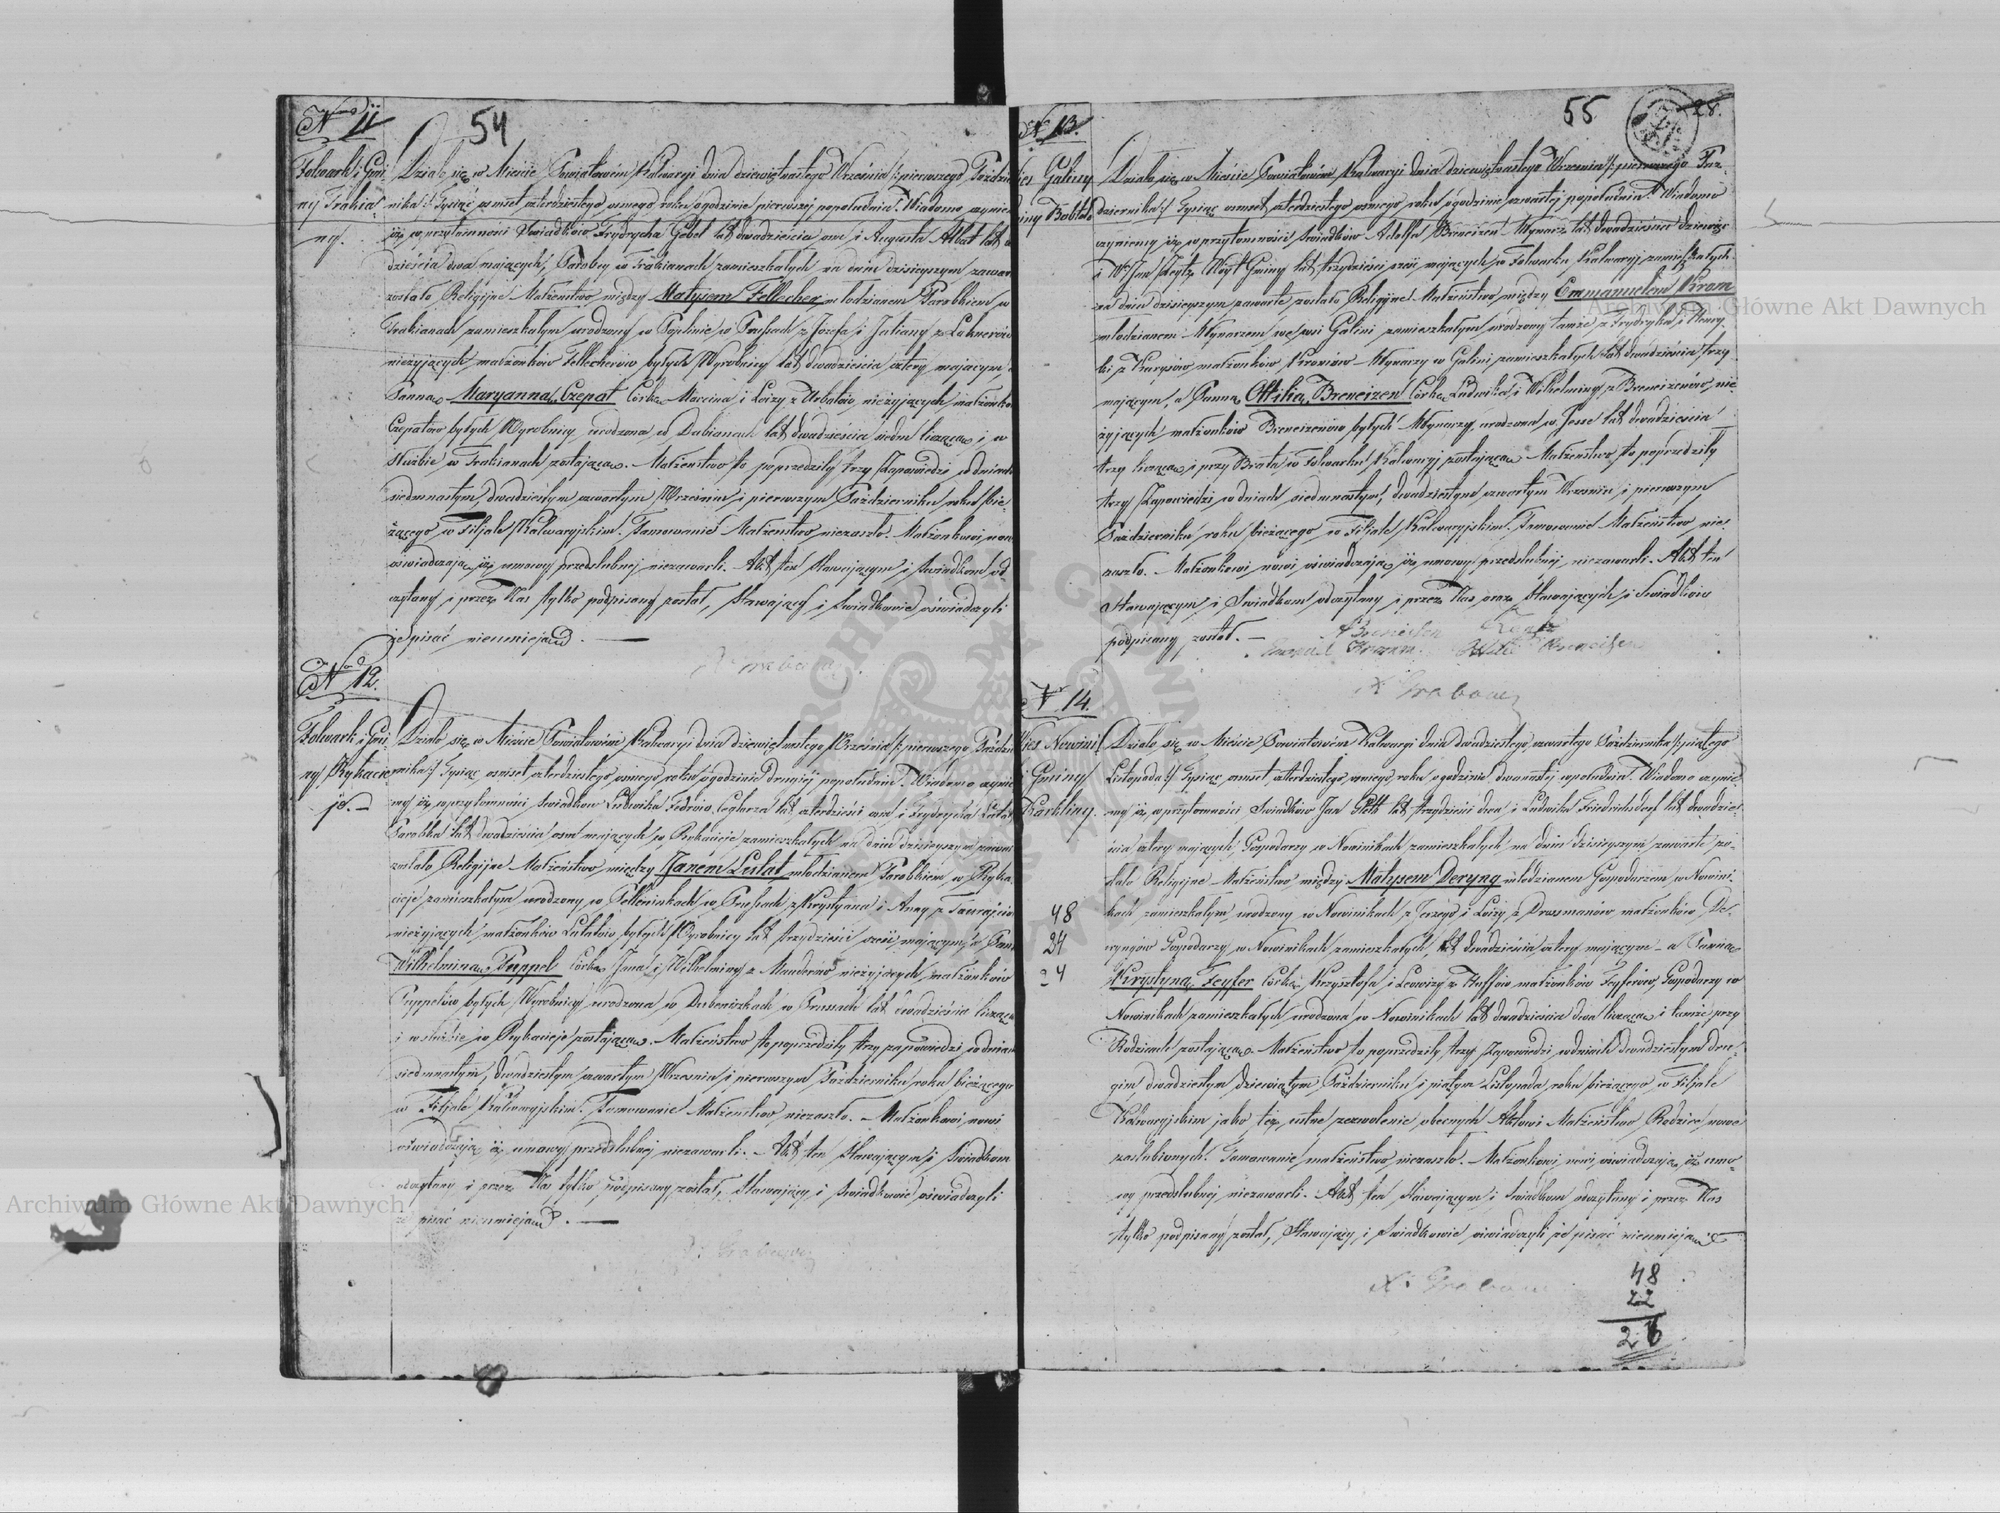 Nro 11
54
Folwark i Gmi
ny Trakia
ny.
Działo się w Mieście Powiatowém Kalwaryi dnia dziewiętnastego Września /: pierwszego Paździer
nika :/ Tysiąc osmset czterdziestego osmego roku o godzinie pierwszej popołudniu. Wiadomo czyniemy
iż w przytomności Swiadków Frydrycha Gebel lat dwadzieścia osm i Augusta Albat lat
dzieścia dwa mających, Parobcy w Trakianach zamieszkałych na dniu dzisiejszym zawar
zostało Religijne Małżeństwo między Matysem Fellecher młodzianem Parobkiem w
Trakianach zamieszkałym urodzony w w Prusach z Józefa i Julianny z
nieżyjących małżonków Fellecherów byłych Wyrobnicy lat dwadzieścia cztery mającym, a
Panną Maryanną Czepat Córką Marcina i Loizy z nieżyjących małżonków
Czepatów byłych Wyrobnicy urodzona w Dabianach lat dwadzieścia siedm licząca i w
służbie w Trakianach zostająca. Małżeństwo to poprzedziły trzy Zapowiedzi w dniach
siedmnastym, dwudziestym czwartym Września i pierwszym Października roku bie
żącego w Filjale Kalwaryjskim. Tamowanie Małżeństwo niezaszło. Małżonkowi nowi
oświadczają iż umowy przedślubnej niezawarli. Akt ten Stawającym i Swiadkom od
czytany i przez Nas tylko podpisany został, Stawający i Swiadkowie oświadczyli
że pisać nieumieją.
X. Grabowy
Nro 12.
Folwark i Gmi
ny Rykacie
jo.
Działo się w Mieście Powiatowém Kalwaryi dnia dziewiętnastego Września /: pierwszego Paździer
nika :/ Tysiąc osmset czterdziestego osmego roku o godzinie drugiej popołudniu. Wiadomo czynie
my iż w przytomności Swiadków Ludwika lat czterdzieści osm i Frydrycha
Parobka lat dwadzieścia osm mających w Rykaciejo zamieszkałych na dniu dzisiejszym zawar
zostało Religijne Małżeństwo między Janem Lulat młodzianem Parobkiem w Ryka
ciejo zamieszkałym urodzony w w Prusach z Krystyana i Anny z
nieżyjących małżonków Lulatów byłych Wyrobnicy lat trzydzieści sześć mającym, a Pan
Wilhelminą Puppel Córką Jana i Wilhelminy z nieżyjących małżonków
byłych Wyrobnicy urodzona w w Prusach lat dwadzieścia licząca
i w służbie w Rykaciejo zostająca. Małżeństwo to poprzedziły trzy zapowiedzi w dniach
siedmnastym, dwudziestym czwartym Września i pierwszym Października roku bieżącego
w Filjale Kalwaryjskim. Tamowanie Małżeństwo niezaszło. Małżonkowi nowi
oświadczają iż umowy przedślubnej niezawarli. Akt ten Stawającym i Swiadkom
odczytany i przez Nas tylko podpisany został, Stawający i Swiadkowie oświadczyli
że pisać nieumieją.
X. Grabowy
N 13.
55
28.
ieś Galiny
miny Bobtele
Działo się w Mieście Powiatowém Kalwaryi dnia dziewiętnastego Września /: pierwszego Paź
dziernika :/ Tysiąc osmset czterdziestego osmego roku o godzinie czwartej popołudniu. Wiadomo
czyniemy iż w przytomności Swiadków Adolfa Brencizen Młynarz lat dwadzieścia dziewięć
i Wo Jan Wójt Gminy lat trzydzieści sześć mających w Folwarku Kalwaryi zamieszkałych
na dniu dzisiejszym zawarte zostało Religijne Małżeństwo między Emmanuelem Krom
młodzianem Młynarzem we wsi Galini zamieszkałym urodzony tamże z Frydryka i Henry
ki z małżonków Kromów Młynarzy w Galini zamieszkałych lat dwadzieścia trzy
mającym, a Panną Ottilią Brencizen Córką Ludwika i Wilhelminy z Brencizenów nie
żyjących małżonków Brencizenów byłych Młynarzy urodzona w Jesse lat dwadzieścia
trzy licząca i przy Bracie w Folwarku Kalwaryi zostająca Małżeństwo to poprzedziły
trzy Zapowiedzi w dniach siedmnastym, dwudziestym czwartym Września i pierwszym
Października roku bieżącego w Filjale Kalwaryjskim. Tamowanie Małżeństwo nie
zaszło. Małżonkowi nowi oświadczają iż umowy przedślubnej niezawarli. Akt ten
Stawającym i Swiadkom odczytany i przez Nas oraz Stawających i Swiadków
podpisany został.
A Brencizen
Emanuel Kromm. Ottilie Brencizen
X Grabowy
N 14.
ieś Nowini
Gminy
Karkliny.
48
24
24
Działo się w Mieście Powiatowém Kalwaryi dnia dwudziestego czwartego Października /: piątego
Listopada :/ Tysiąc osmset czterdziestego osmego roku o godzinie dwunastej w południe. Wiadomo czynie
my iż w przytomności Swiadków Jan lat trzydzieści dwa i Ludwika Friedrichsdorf lat dwadzie
ścia cztery mających, Gospodarzy w Nowinikach zamieszkałych na dniu dzisiejszym zawarte zo
stało Religijne Małżeństwo między Matysem Deryng młodzianem Gospodarzem w Nowini
kach zamieszkałym urodzony w Nowinikach z Jerzego i Loizy z Drossmanów małżonków De
ryngów Gospodarzy w Nowinikach zamieszkałych, lat dwadzieścia cztery mającym – a Panną
Krystyną Feyfer Córką Krzysztofa i Lowizy z Hoffów małżonków Feyferów, Gospodarzy w
Nowinikach zamieszkałych urodzona w Nowinikach lat dwadzieścia dwa licząca i tamże przy
Rodzicach zostająca. Małżeństwo to poprzedziły trzy Zapowiedzi w dniach dwudziestym dru
gim dwudziestym dziewiątym Października i piątym Listopada roku bieżącego w Filjale
Kalwaryjskim jako też ustne zezwolenie obecnych Aktowi Małżeństwa Rodzice nowo
zaślubionych. Tamowanie małżeństwo niezaszło. Małżonkowi nowi oświadczają iż umo
wy przedślubnej niezawarli. Akt ten Stawającym i Swiadkom odczytany i przez Nas
tylko podpisany został, Stawający i Swiadkowie oświadczyli że pisać nieumieją
X. Grabowy
48
22
26
Archiwum Główne Akt Dawnych
Archiwum Główne Akt Dawnych